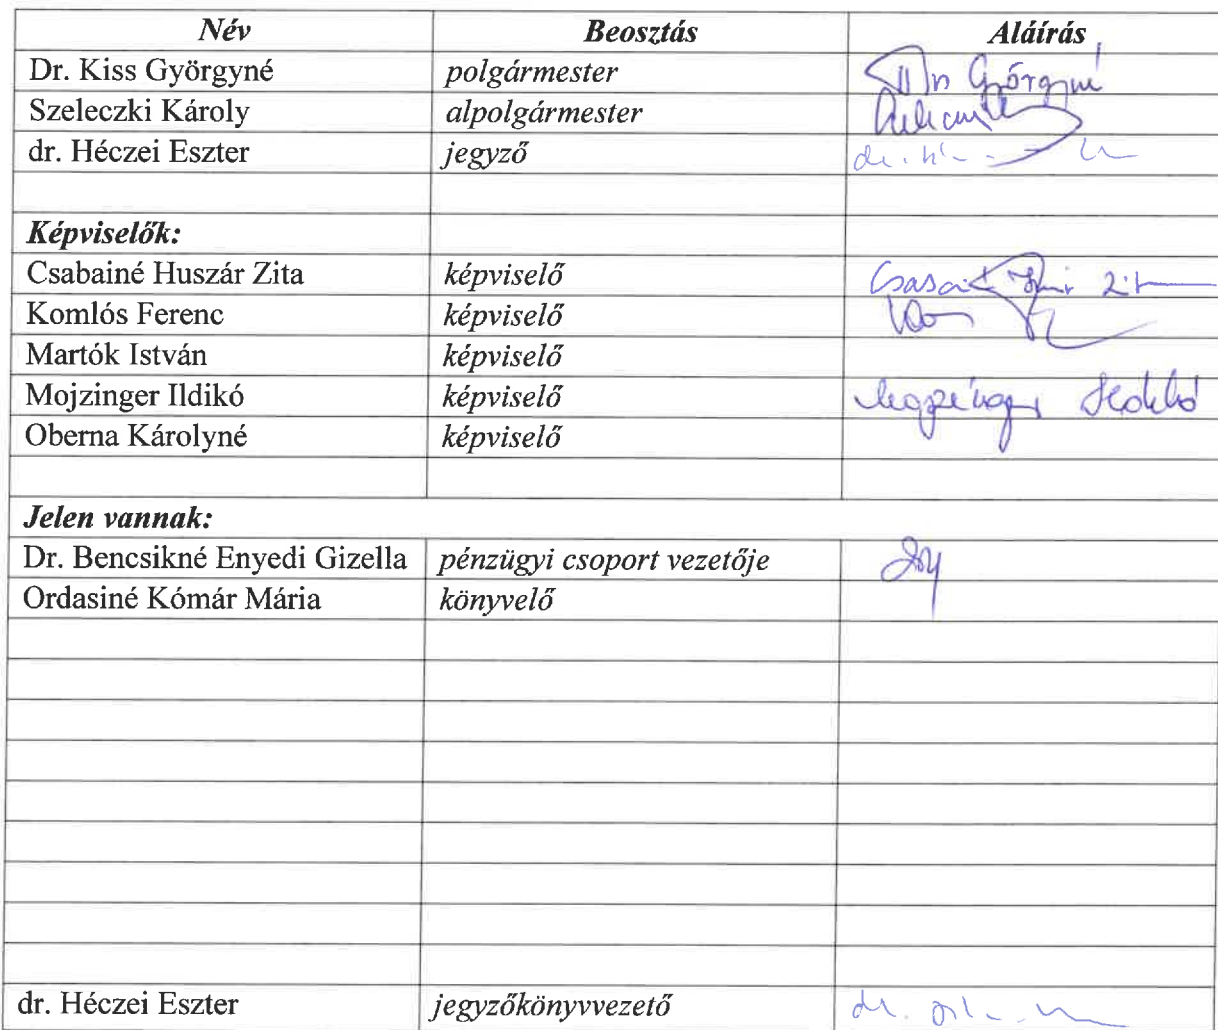 Név Beosztás Aláírás
Dr. Kiss Györgyné polgármester Györgyné
Szeleczki Károly alpolgármester
dr. Héczei Eszter jegyző dr.
Képviselők:
Csabainé Huszár Zita képviselő
Komlós Ferenc képviselő
Martók István képviselő
Mojzinger Ildikó képviselő
Oberna Károlyné képviselő
Jelen vannak:
Dr. Bencsikné Enyedi Gizella pénzügyi csoport vezetője
Ordasiné Kómár Mária könyvelő
dr. Héczei Eszter jegyzőkönyvvezető dr.